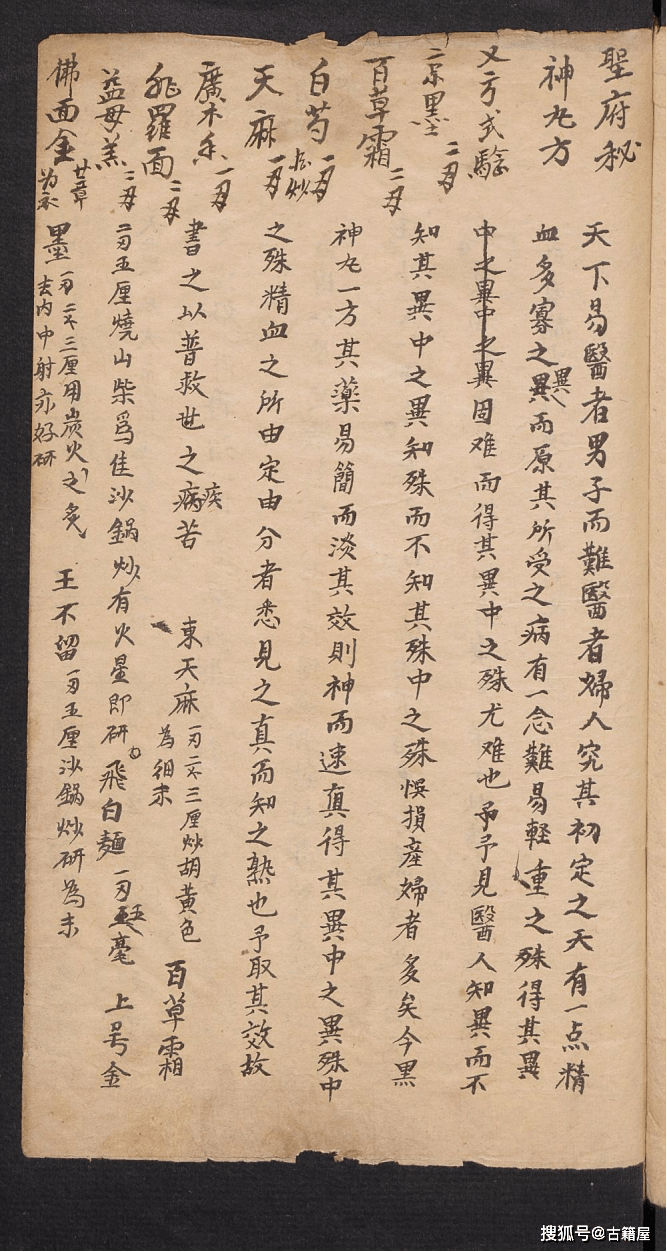 聖府秘
神丸方
又方式驗
京墨 二刄
百草霜 二刄
白芍 一刄 炒
天麻 一刄
廣木香 一刄
飛羅面 二刄
益母羔 二刄
佛面金 廿章 为衣
天下易醫者男子而難醫者婦人究其初定之天有一点精
血多寡之異異而原其所受之病有一念難易軽重之殊得其異
中之異中之異固难而得其異中之殊尤难也予予見醫人知異而不
知其異中之異知殊而不知其殊中之殊悞損產婦者多矣今黑
神丸一方其藥易簡而淡其效則神而速真得其異中之異殊中
之殊精血之所由定由分者悉見之真而知之熟也予取其效故
書之以普救世之病疾苦 東天麻 一刄二分三厘炒胡黄色 為細末 百草霜
二刄五厘燒山柴爲佳沙鍋炒有火星即研 飛白麺 一刄五毫 上号金
墨 一刄二分三厘用炭火之炙 去内中射亦好研 王不留 一刄五厘沙鍋炒研為末
搜狐号@古籍屋